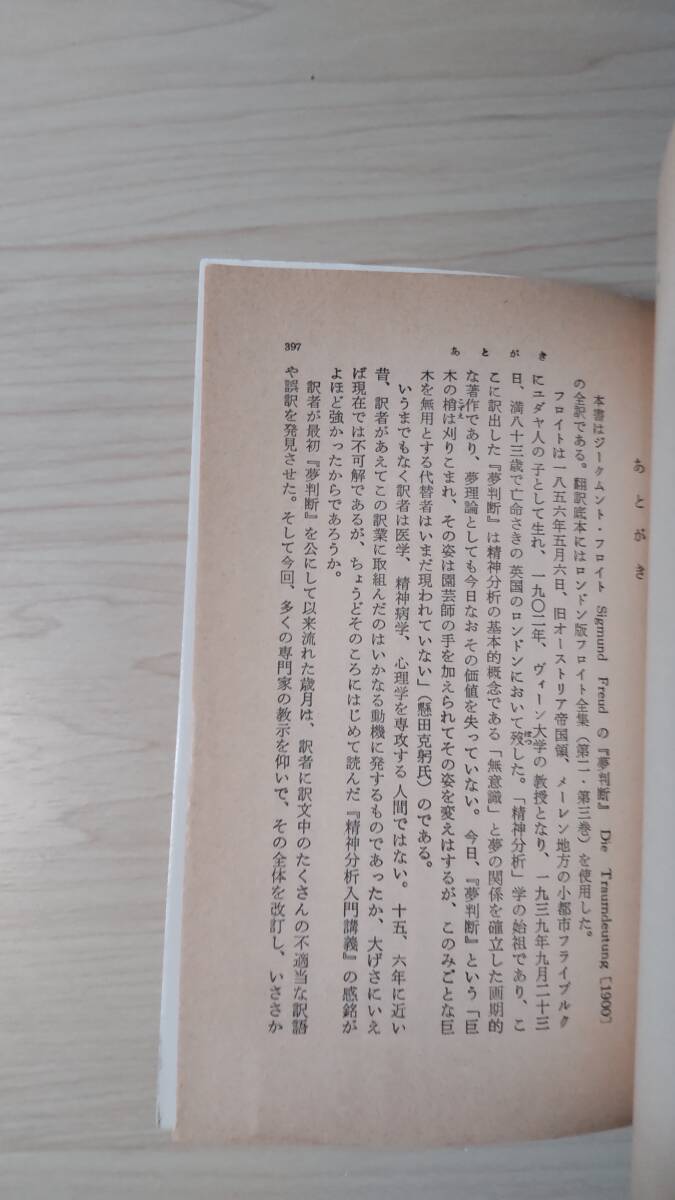 あとがき
本書はジークムント・フロイト Sigmund Freud の『夢判断』 Die Traumdeutung［1900］
の全訳である。翻訳底本にはロンドン版フロイト全集（第二・第三巻）を使用した。
フロイトは一八五六年五月六日、旧オーストリア帝国領、メーレン地方の小都市フライブルク
にユダヤ人の子として生れ、一九〇二年、ヴィーン大学の教授となり、一九三九年九月二十三
日、満八十三歳で亡命さきの英国のロンドンにおいて歿した。「精神分析」学の始祖であり、こ
こに訳出した『夢判断』は精神分析の基本的概念である「無意識」と夢の関係を確立した画期的
な著作であり、夢理論としても今日なおその価値を失っていない。今日、『夢判断』という「巨
木の梢は刈りこまれ、その姿は園芸師の手を加えられてその姿を変えはするが、このみごとな巨
木を無用とする代替者はいまだ現われていない」（懸田克躬氏）のである。
いうまでもなく訳者は医学、精神病学、心理学を専攻する人間ではない。十五、六年に近い
昔、訳者があえてこの訳業に取組んだのはいかなる動機に発するものであったか、大げさにいえ
ば現在では不可解であるが、ちょうどそのころにはじめて読んだ『精神分析入門講義』の感銘が
よほど強かったからであろうか。
訳者が最初『夢判断』を公にして以来流れた歳月は、訳者に訳文中のたくさんの不適当な訳語
や誤訳を発見させた。そして今回、多くの専門家の教示を仰いで、その全体を改訂し、いささか
あとがき
397
ぼつ
こずえ